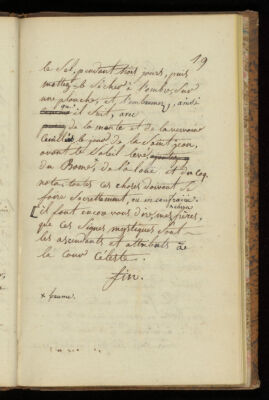 19
le sel, pendant trois jours, puis
mettez-le sécher à l'ombre, sur
une planche, et l'embaumez, ainsi
qu'il suit, avec
de la menthe et de la verveine
cueillies le jour de la Saint jean,
avant le Soleil levé,
du Bouc, de l'aloe et du coq.
nota, toutes ces choses doivent se
faire Secrettement, ou en confrairie.
[il faut encore vous dire, mes frères,
que ces Signes mystiques sont
les ascendants et attributs de
la Cour Céleste.
fin.
x paume.